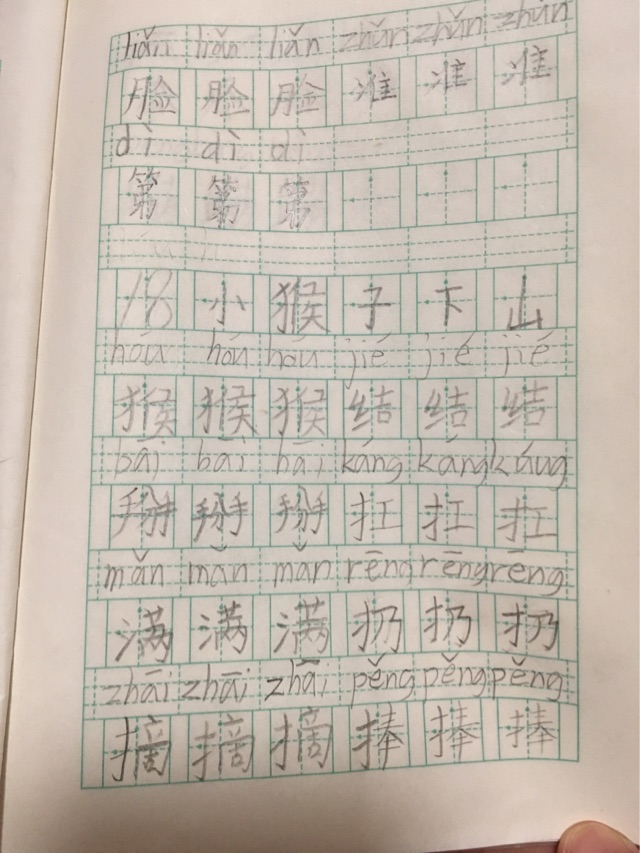 liǎn liǎn liǎn zhǔn zhǔn zhǔn
脸 脸 脸 准 准 准
dì dì dì
第 第 第
18 小 猴 子 下 山
hóu hóu hóu jié jié jié
猴 猴 猴 结 结 结
bāi bāi bāi káng káng káng
掰 掰 掰 扛 扛 扛
mǎn mǎn mǎn rēng rēng rēng
满 满 满 扔 扔 扔
zhāi zhāi zhāi pěng pěng pěng
摘 摘 摘 捧 捧 捧